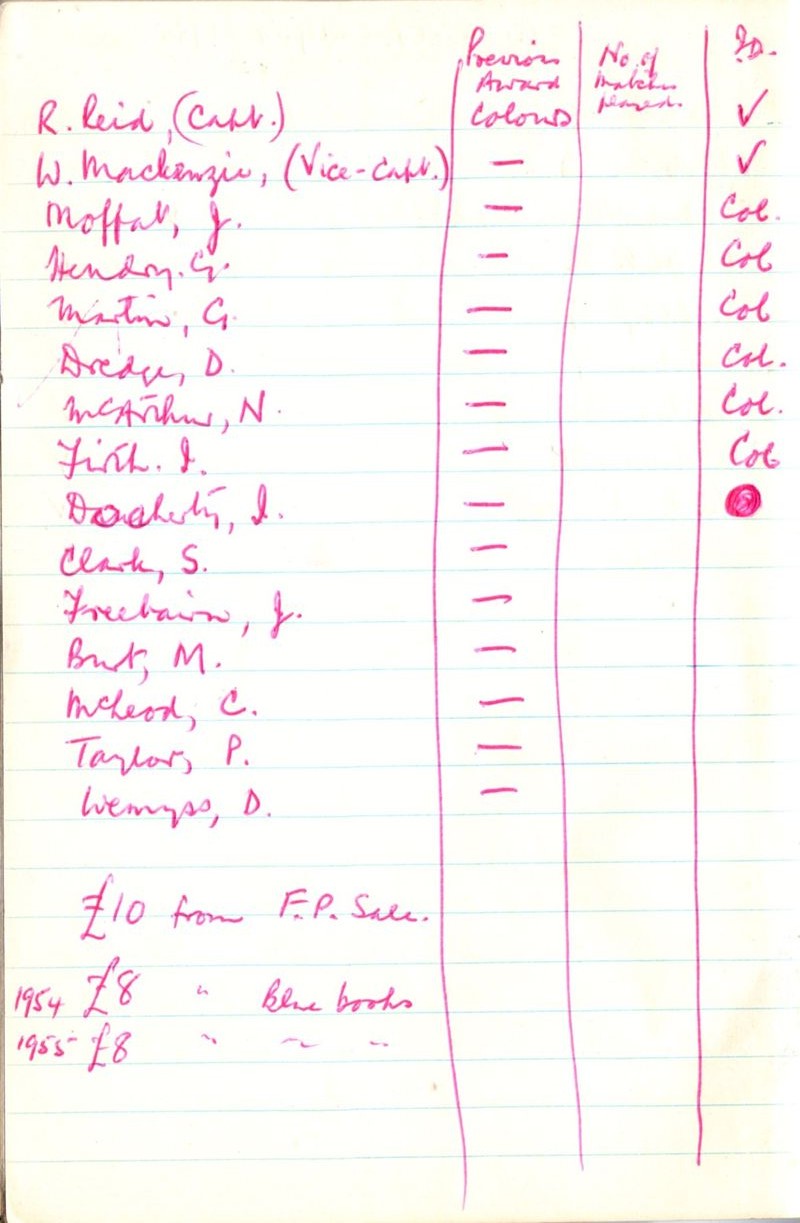 Previous Award No. of matches played.
R. Reid, (Capt.) Colours ✓
W. Mackenzie, (Vice-Capt.) — ✓
Moffat, J. — Col.
Hendry. G. — Col
Martin, G. — Col
Dredge, D. — Col.
McArthur, N. — Col.
Firth. I. — Col
Docherty, I. —
Clark, S. —
Freebairn, J. —
Burt, M. —
McLeod, C. —
Taylor, P. —
Wemyss, D. —
£10 from F.P. Sale.
1954 £8 " Blue books
1955 £8 " " "